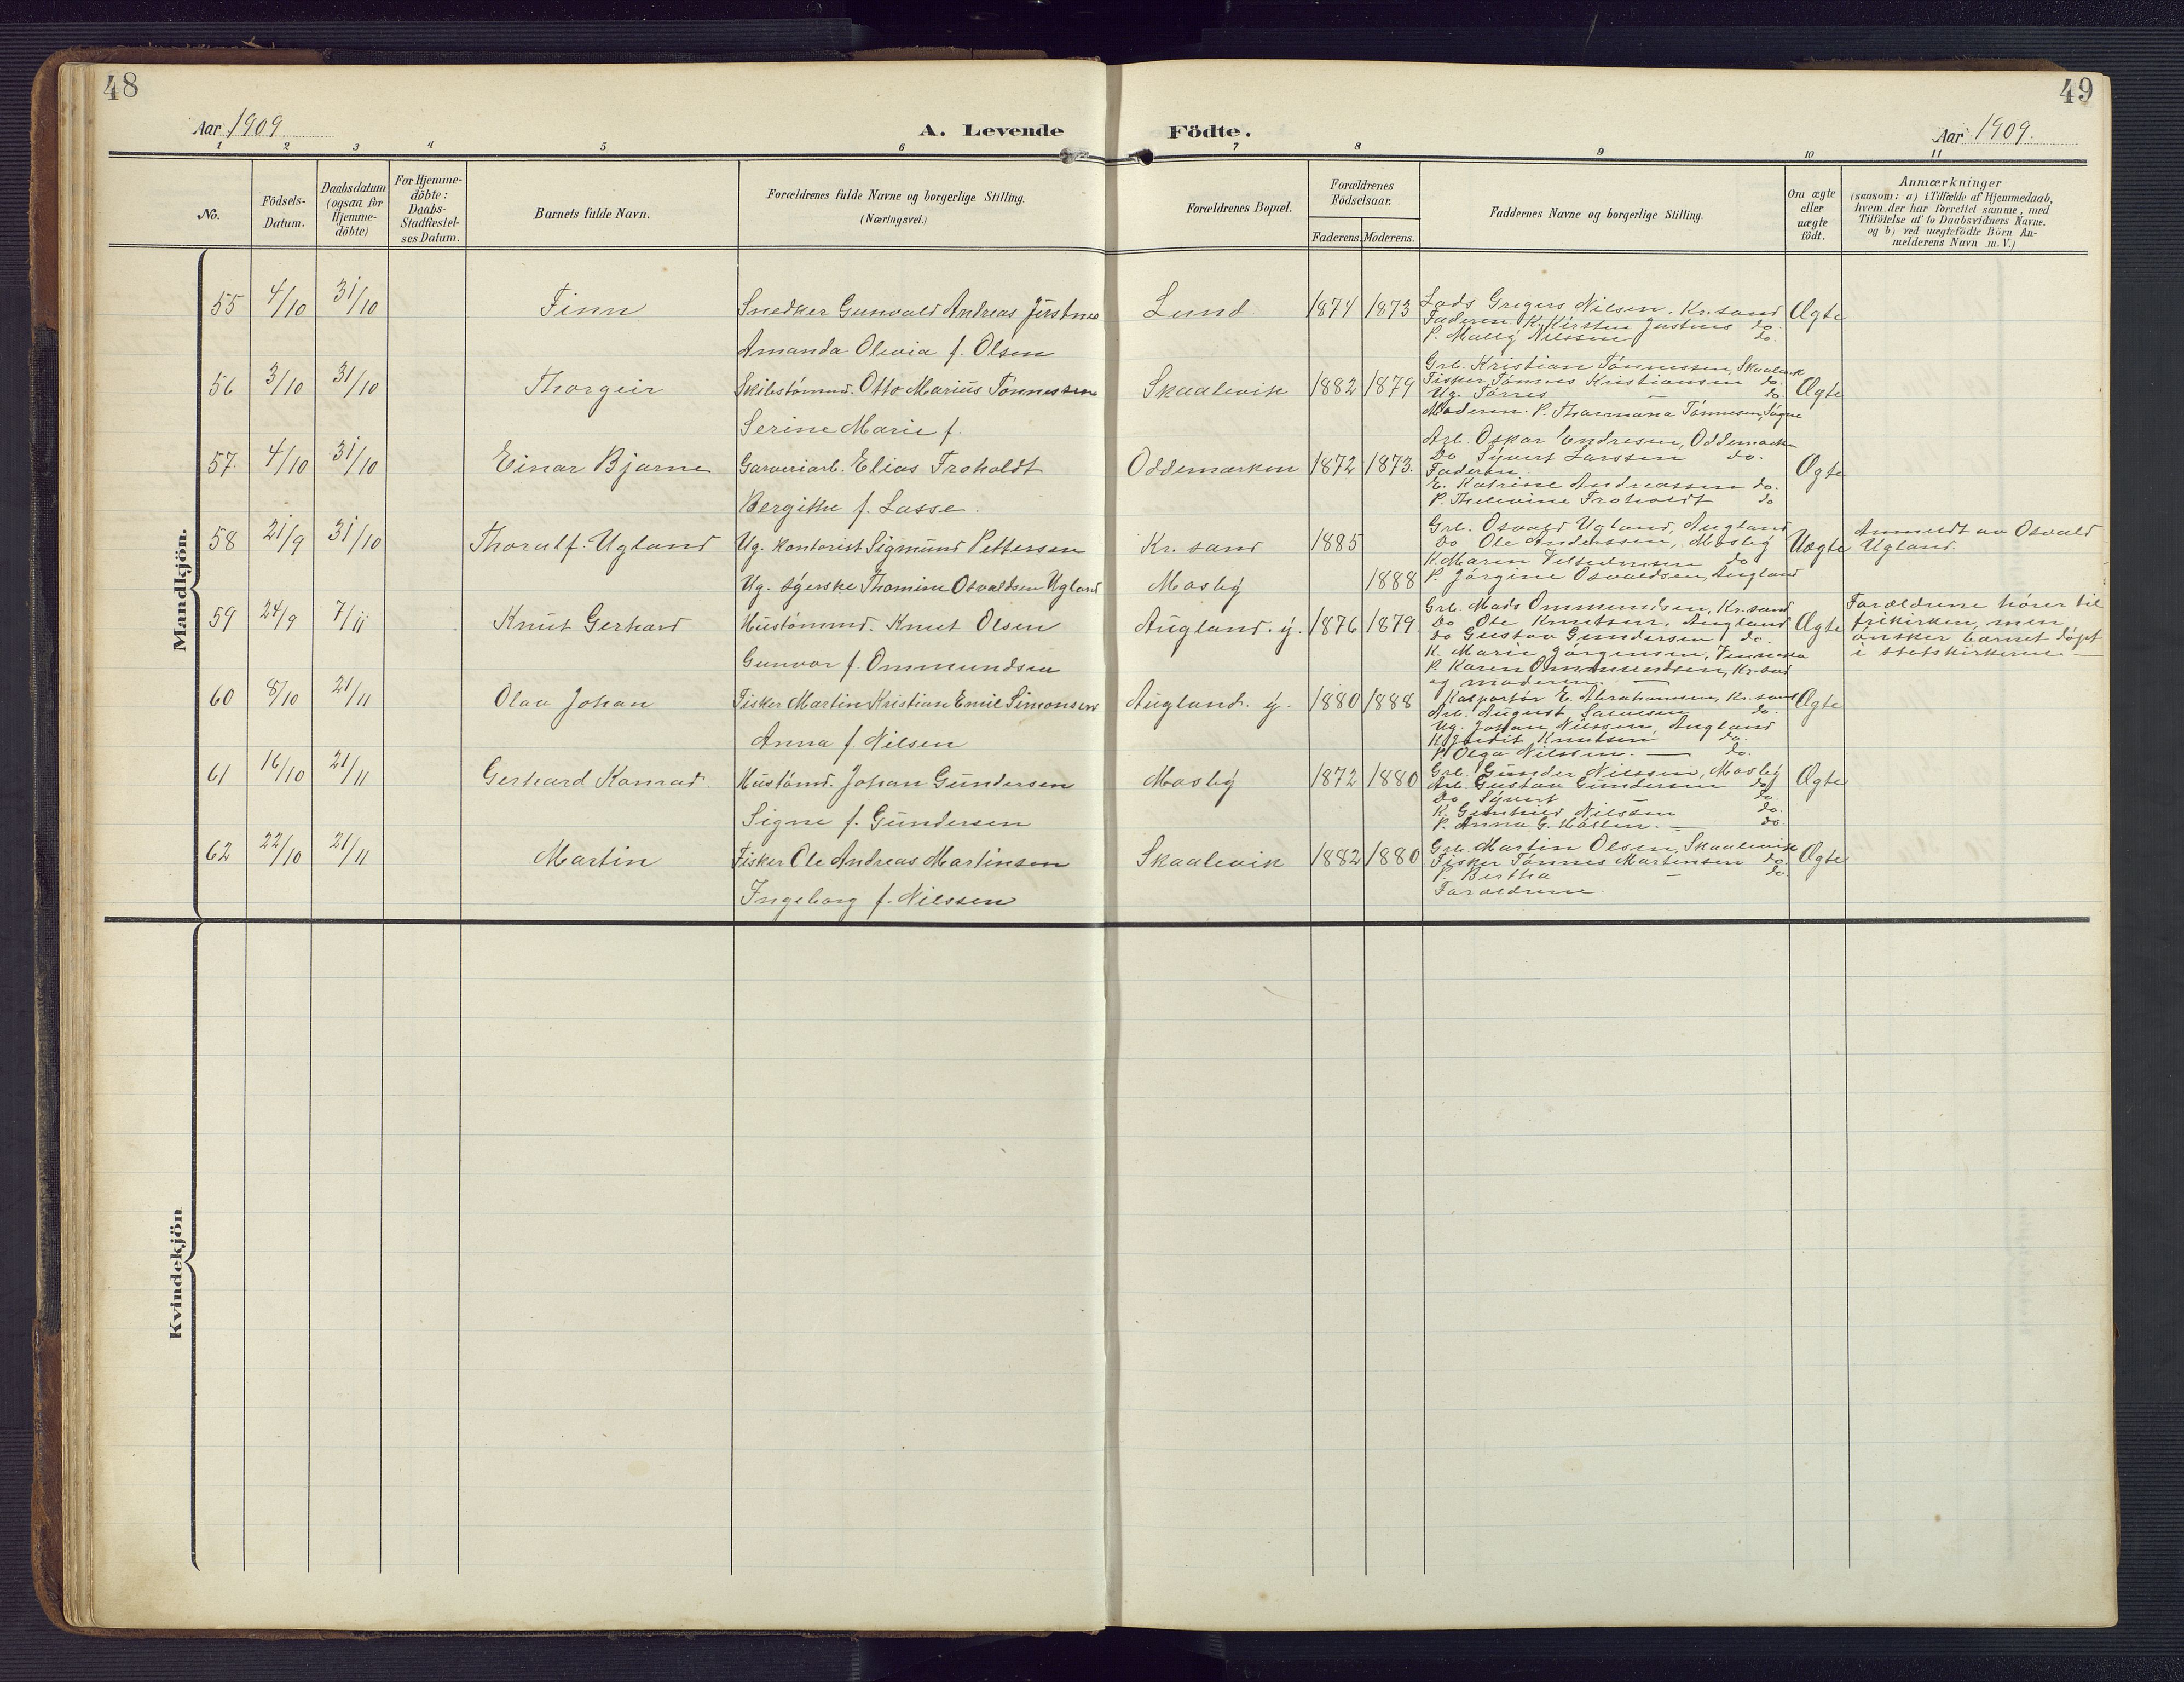 48
49
Aar 1909
A. Levende Födte.
Aar 1909.
1 2 3 4 5 6 7 8 9 10 11
No.
Födsels-Datum.
Daabsdatum (ogsaa for Hjemme-döbte)
For Hjemme-döbte: Daabs-Stadfæstel-ses Datum.
Barnets fulde Navn.
Forældrenes fulde Navne og borgerlige Stilling.
(Næringsvei.)
Forældrenes Bopæl.
Forældrenes Födselsaar.
Faderens. Moderens.
Faddernes Navne og borgerlige Stilling.
Om ægte eller uægte födt.
Anmærkninger
(saasom: a) i Tilfælde af Hjemmedaab, hvem der har forrettet samme, med Tilföielse af to Daabsvidners Navne, og b) ved uægtefödte Börn An-melderens Navn m. V.)
Mandkjön.
55 4/10 31/10 Finn Snedker Gunvald Andreas Jerstnes Lund 1874 1873 Ægte
Amanda Olevia f. Olsen
Lods Gregers Nilsen, Kr.sand
Faderen. K. Kirsten Justnes do.
P. Mally Nilssen do.
56 3/10 31/10 Thorgeir Skibstömmd. Otto Marius Tönnessen Skaalevik 1882 1879 Ægte
Serine Marie f.
Grb. Kristian Tönnessen, Skaalevik
Fisker Tönnes Kristiansen do.
Ug. Törres — do.
Moderen. P. Thormana Tönnesen, Søgne
57. 4/10 31/10 Einar Bjarne Garveriarb. Elias Froholdt Oddemarken 1872 1873. Ægte
Bergithe f. Lasse.
Arb. Oskar Endresen, Oddemark
Do Syvert Larssen do.
Faderen.
E. Katrine Andreassen do.
P. Thelevine Froholdt do
58 21/9 31/10 Thoralf. Ugland Ug. Kontorist Sigmund Pettersen Kr. sand 1885 Uægte
Ug. syerske Thomine Osvaldsen Ugland Mosby 1888
Grb. Osvald Ugland, Augland
Do Ole Anderssen, Mosby
K. Maren Vilhelmsen do
P. Jörgine Osvaldsen, Augland
Anmeldt av Osvald
Ugland.
59 24/9 7/11 Knut Gerhard Hustömmd. Knut Olsen Augland. y. 1876 1879 Ægte
Gunvor f. Ommundsen
Grb. Mads Ommundsen, Kr.sand
Do Ole Knutsen, Augland
Do Gustav Gundersen do.
K. Marie Jörgensen, Vennesla
P. Karen Ommundsen, Kr.sand
og moderen. —
Forældrene hörer til
frikirken, men
önsker barnet döpt
i statskirken —
60 8/10 21/11 Olav Johan Fisker Martin Kristian Emil Simonsen Augland. y. 1880 1888 Ægte
Anna f. Nilsen
Kolportör E. Abrahamsen, Kr.sand
Arb. August Salvesen do.
Ug. Johan Nilssen, Augland
K. Judit Knutsen do.
P. Olga Nilssen. — do.
61 16/10 21/11 Gerhard Konrad Hustömd. Johan Gundersen Mosby 1872 1880 Ægte
Signe f. Gundersen
Grb. Gunder Nilssen, Mosby
Arb. Gustav Gundersen do
Do Syvert — do.
K. Gunhild Nilssen do.
P. Anna G. — do.
62 22/10 21/11 Martin Fisker Ole Andreas Martinson Skaalevik 1882 1880 Ægte
Ingeborg f. Nilssen
Grb. Martin Olsen, Skaalevik
Fisker Tönnes Martinsen do.
P. Bertha — do.
Forældrene.
Kvindekjön